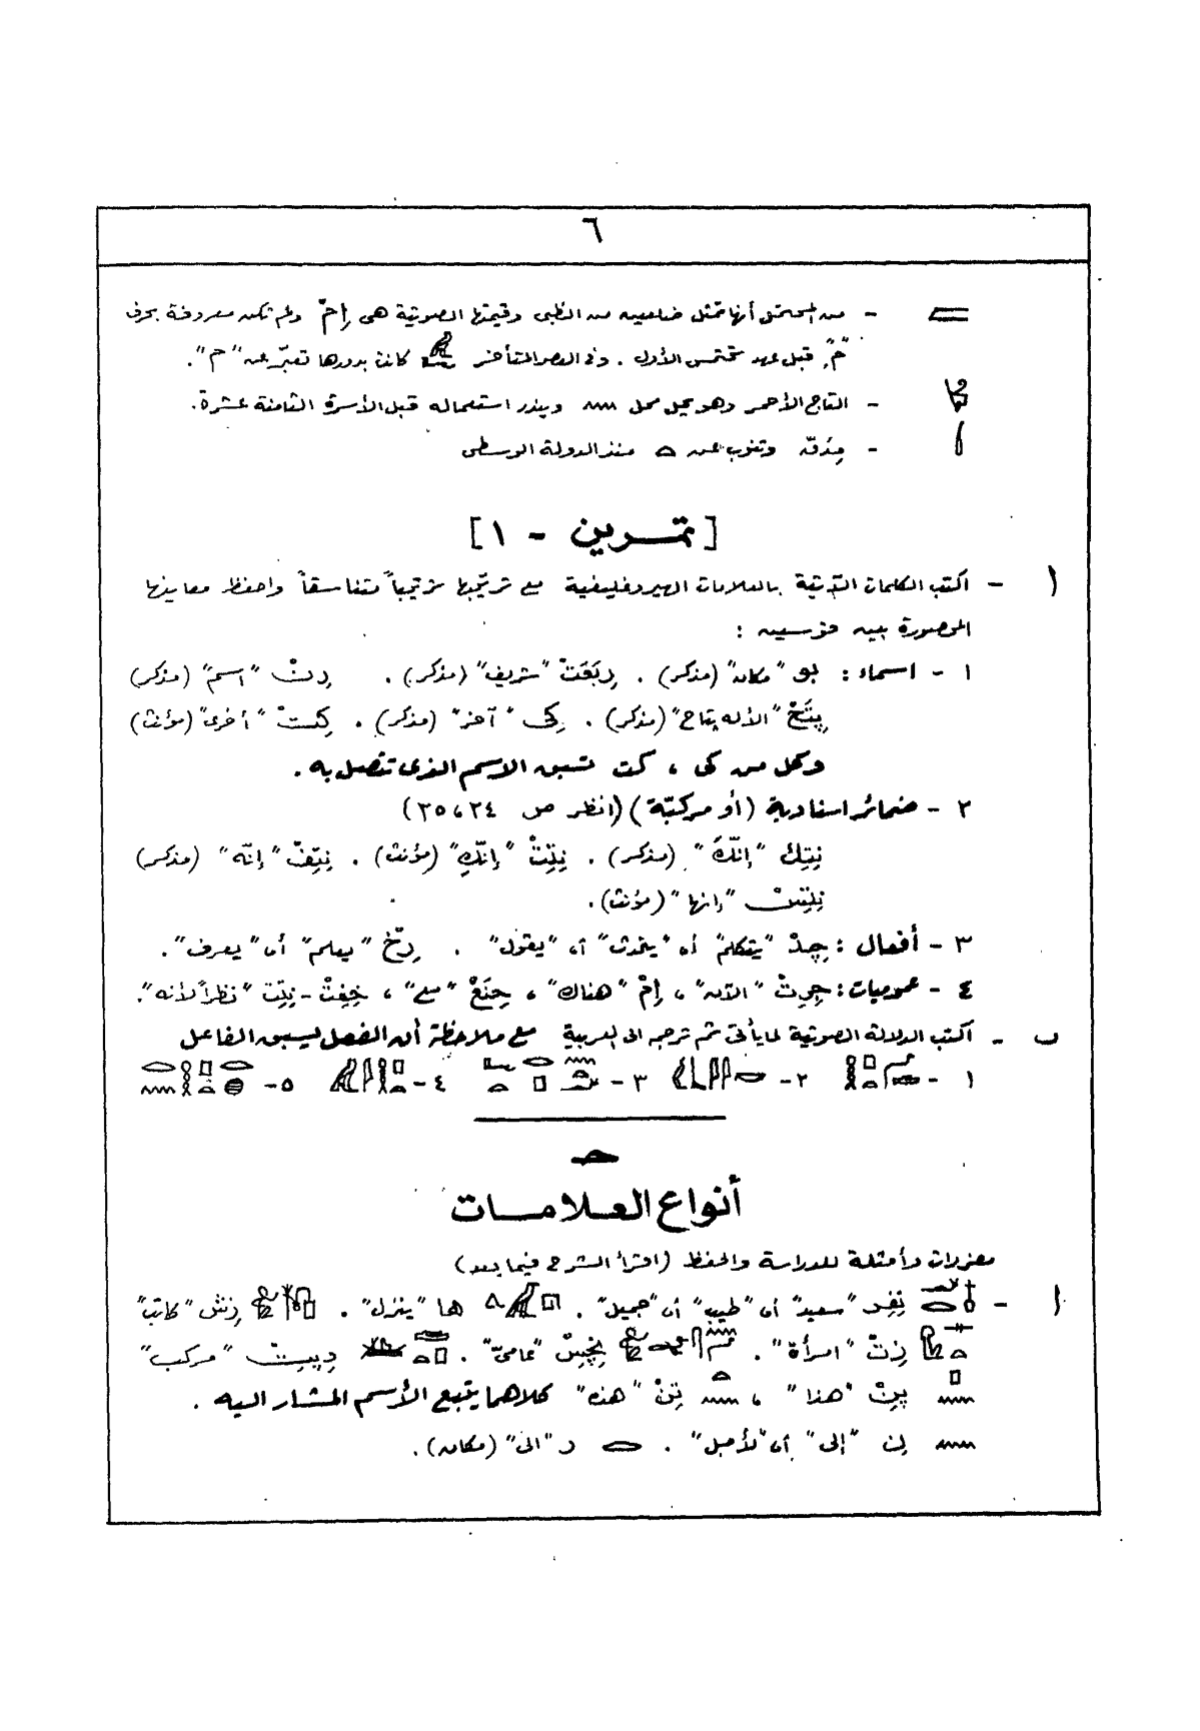 ٦
- من المحتمل أنها تمثل ضلعين من الظبى وقيمتها الصوتية هى إمْ ولم تكن معروفة بحرف
"مْ" قبل عهد تحتمس الأول . وفى العصر المتأخر كانت بدورها تعبّر عن "م".
- التاج الأحمر وهو يحل محل ويندر استعماله قبل الأسرة الثامنة عشرة.
- مِدَقّة وتنوب عن منذ الدولة الوسطى
[تمرين - ١]
ا - اكتب الكلمات الآتية بالعلامات الهيروغليفية مع ترتيبها ترتيباً متناسقاً واحفظ معاينها
المحصورة بين قوسين :
١ - اسماء : بو "مكان" (مذكر) . "شريف" (مذكر) . رِنْ "اسم" (مذكر)
"الأله پتاح" (مذكر) . كِى "آخر" (مذكر) . كِتْ "أخرى" (مؤنث)
وكل من كى ، كت تسبق الاسم الذى تتصل به .
٢ - ضمائر اسنادية (أو مركبّة) (انظر ص ٢٤، ٢٥)
نِتِك "إنّكَ" (مذكر) . نِتِتْ "إنّكِ" (مؤنث) . نِتِفْ "إنّه" (مذكر)
نِتِسْ "إنها" (مؤنث).
٣ - أفعال : چِدْ "يتكلم" أو "يتحدث" أو "يقول" . رِخْ "يعلم" أو "يعرف".
٤ - عموميات : "الآن" ، إمْ "هناك" ، حِنَعْ "مع" ، خِفِتْ - نِتِت "نظراً لأنه".
ب - اكتب الدلالة الصوتية لما يأتى ثم ترجم الى العربية مع ملاحظة أن الفعل يسبق الفاعل
١ - ٢ - ٣ - ٤ - ٥ -
حـ
أنواع العلامات
مفردات وأمثلة للدراسة والحفظ (اقرأ الشرح فيما بعد)
ا - نِفِر "سعيد" أو "طيب" أو "جميل" . ها "ينزل" . "كاتب"
"امرأة" . "عامىّ" . دِپِت "مركب"
پِنْ "هذا" ، تِنْ "هذه" كلاهما يتبع الأسم المشار اليه .
نِ "إلى" أو "لأجل" . ر "الى" (مكان) .